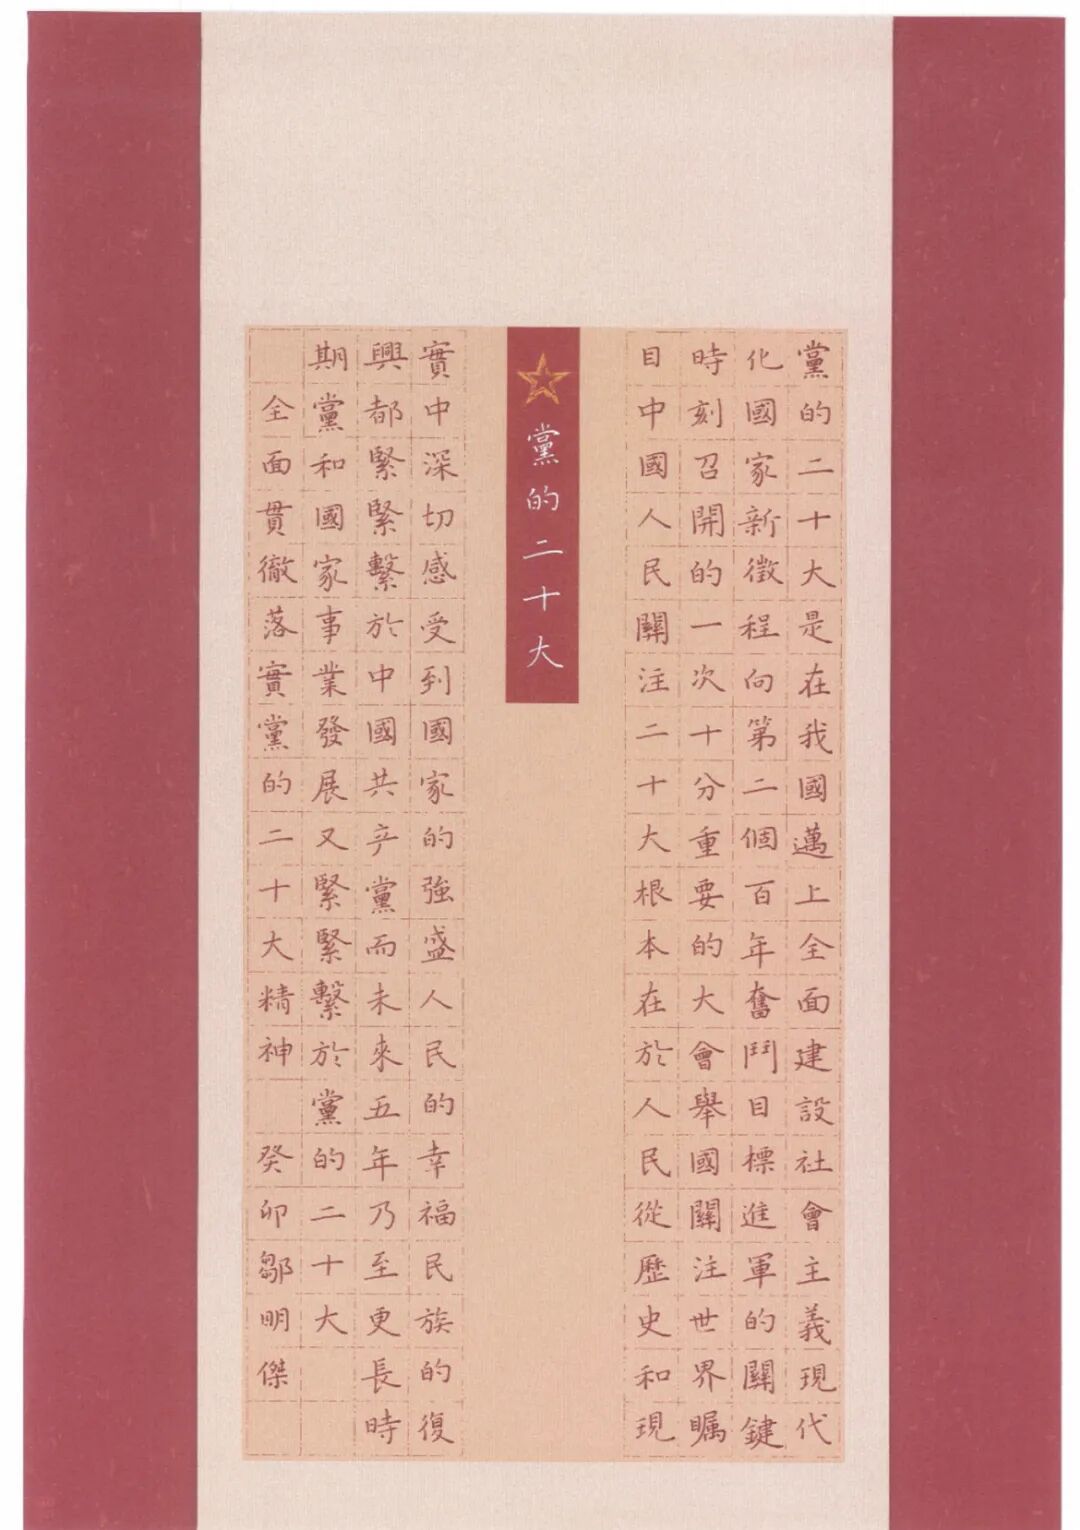 黨的二十大是在我國邁上全面建設社會主義現代
化國家新徵程向第二個百年奮鬥目標進軍的關鍵
時刻召開的一次十分重要的大會舉國關注世界矚
目中國人民關注二十大根本在於人民從歷史和現
黨的二十大
實中深切感受到國家的強盛人民的幸福民族的復
興都緊緊繫於中國共產黨而未來五年乃至更長時
期黨和國家事業發展又緊緊繫於黨的二十大
全面貫徹落實黨的二十大精神 癸卯鄒明傑